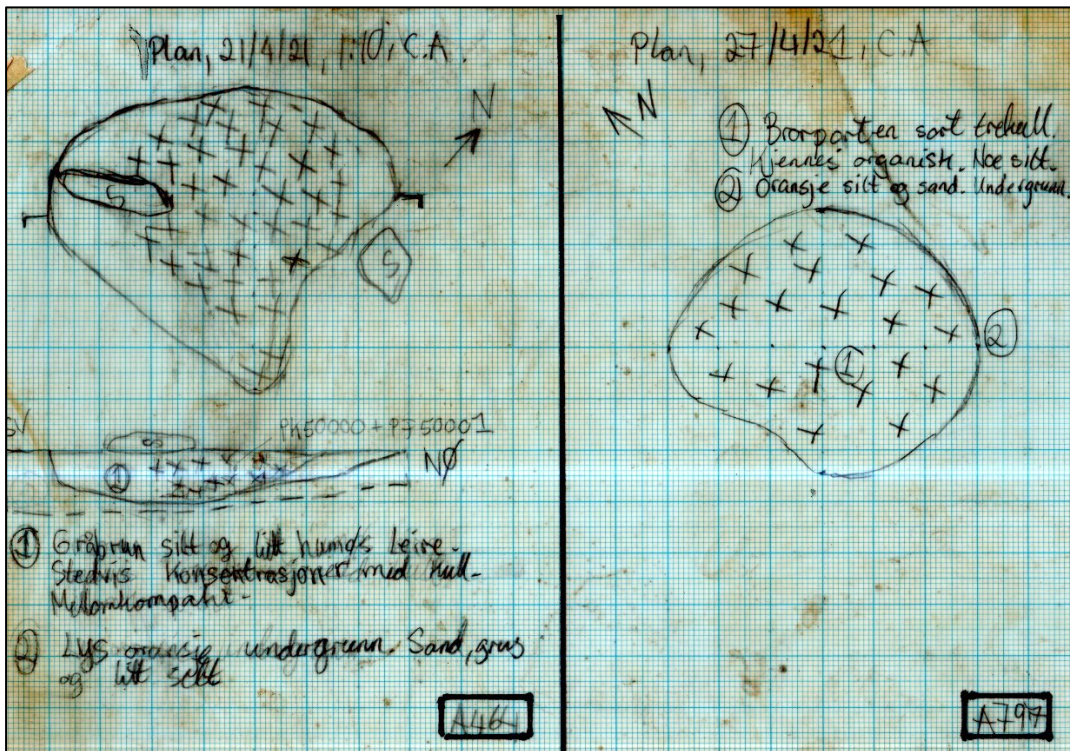 Plan, 21/4/21, 1:10, C.A.
N
S
S
SV
S
PK50000 + PJ50001
1
NØ
1 Gråbrun silt og litt humøs Leire.
Stedvis Konsentrasjoner med kull.
Mellomkompakt.
2 Lys oransje undergrunn. Sand, grus
og litt silt
A464
Plan, 27/4/21, C.A
N
1 Brorparten sort trekull.
Kjennes organisk. Noe silt.
2 Oransje silt og sand. Undergrunn.
1
2
A797